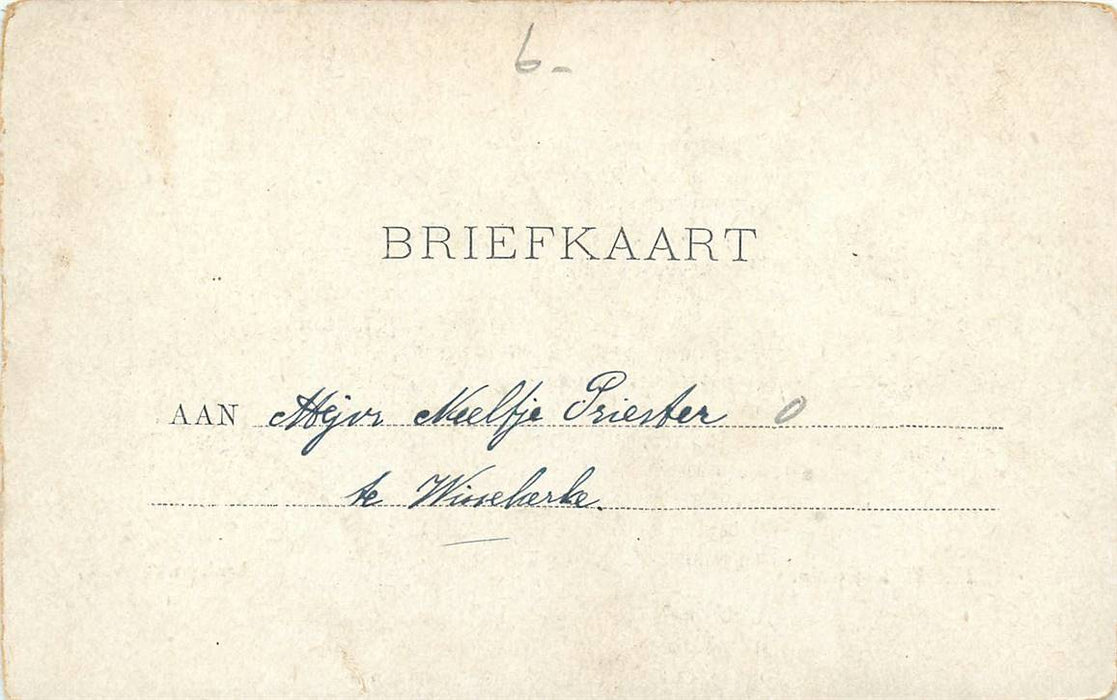 6-
BRIEFKAART
AAN Mejvr Neeltje Priester 0
te Wissekerke.